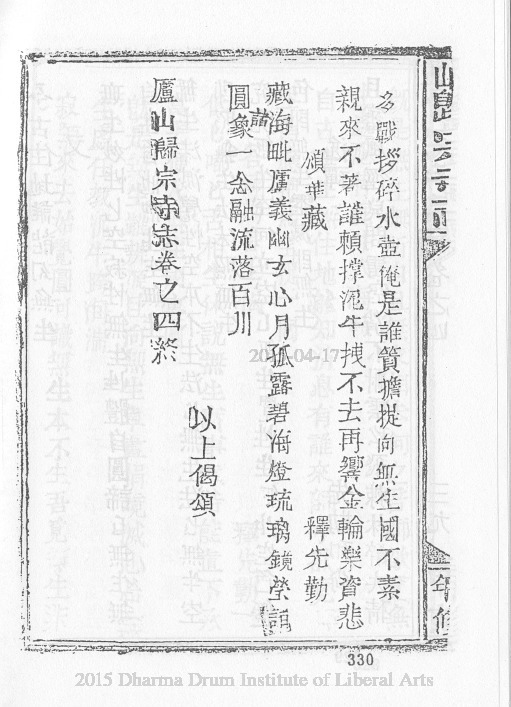 多戰拶碎水壺俺是誰簣擔挺向無生國不素
親來不著誰賴撑泥牛拽不去再響金輪樂資悲
頌華藏
釋先勤
藏海毗盧義幽玄心月孤露碧海燈琉璃鏡瑩
圓象一念融流落百川
以上偈頌
廬山歸宗寺志卷之四終
330
2015 Dharma Drum Institute of Liberal Arts